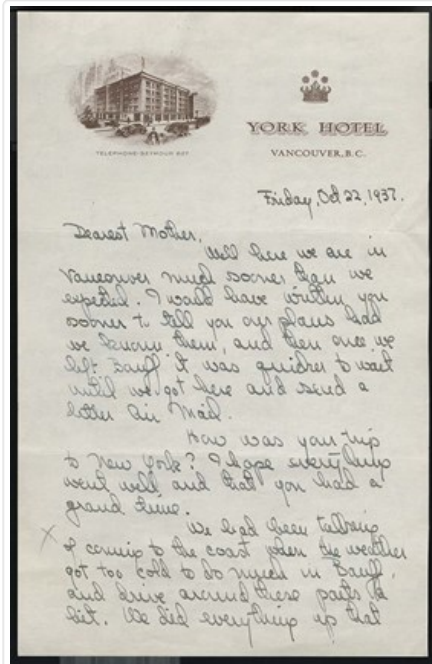 TELEPHONE·SEYMOUR 627
YORK HOTEL
VANCOUVER, B.C.
Friday, Oct 22, 1937.
Dearest Mother,
Well here we are in
Vancouver much sooner than we
expected. I would have written you
sooner to tell you our plans had
we known them, and then once we
left Banff it was quicker to wait
until we got here and send a
letter Air Mail.
How was your trip
to New York? I hope everything
went well and that you had a
grand time.
We had been talking
of coming to the coast when the weather
got too cold to do much in Banff,
and drive around these parts a
bit. We did everything up that